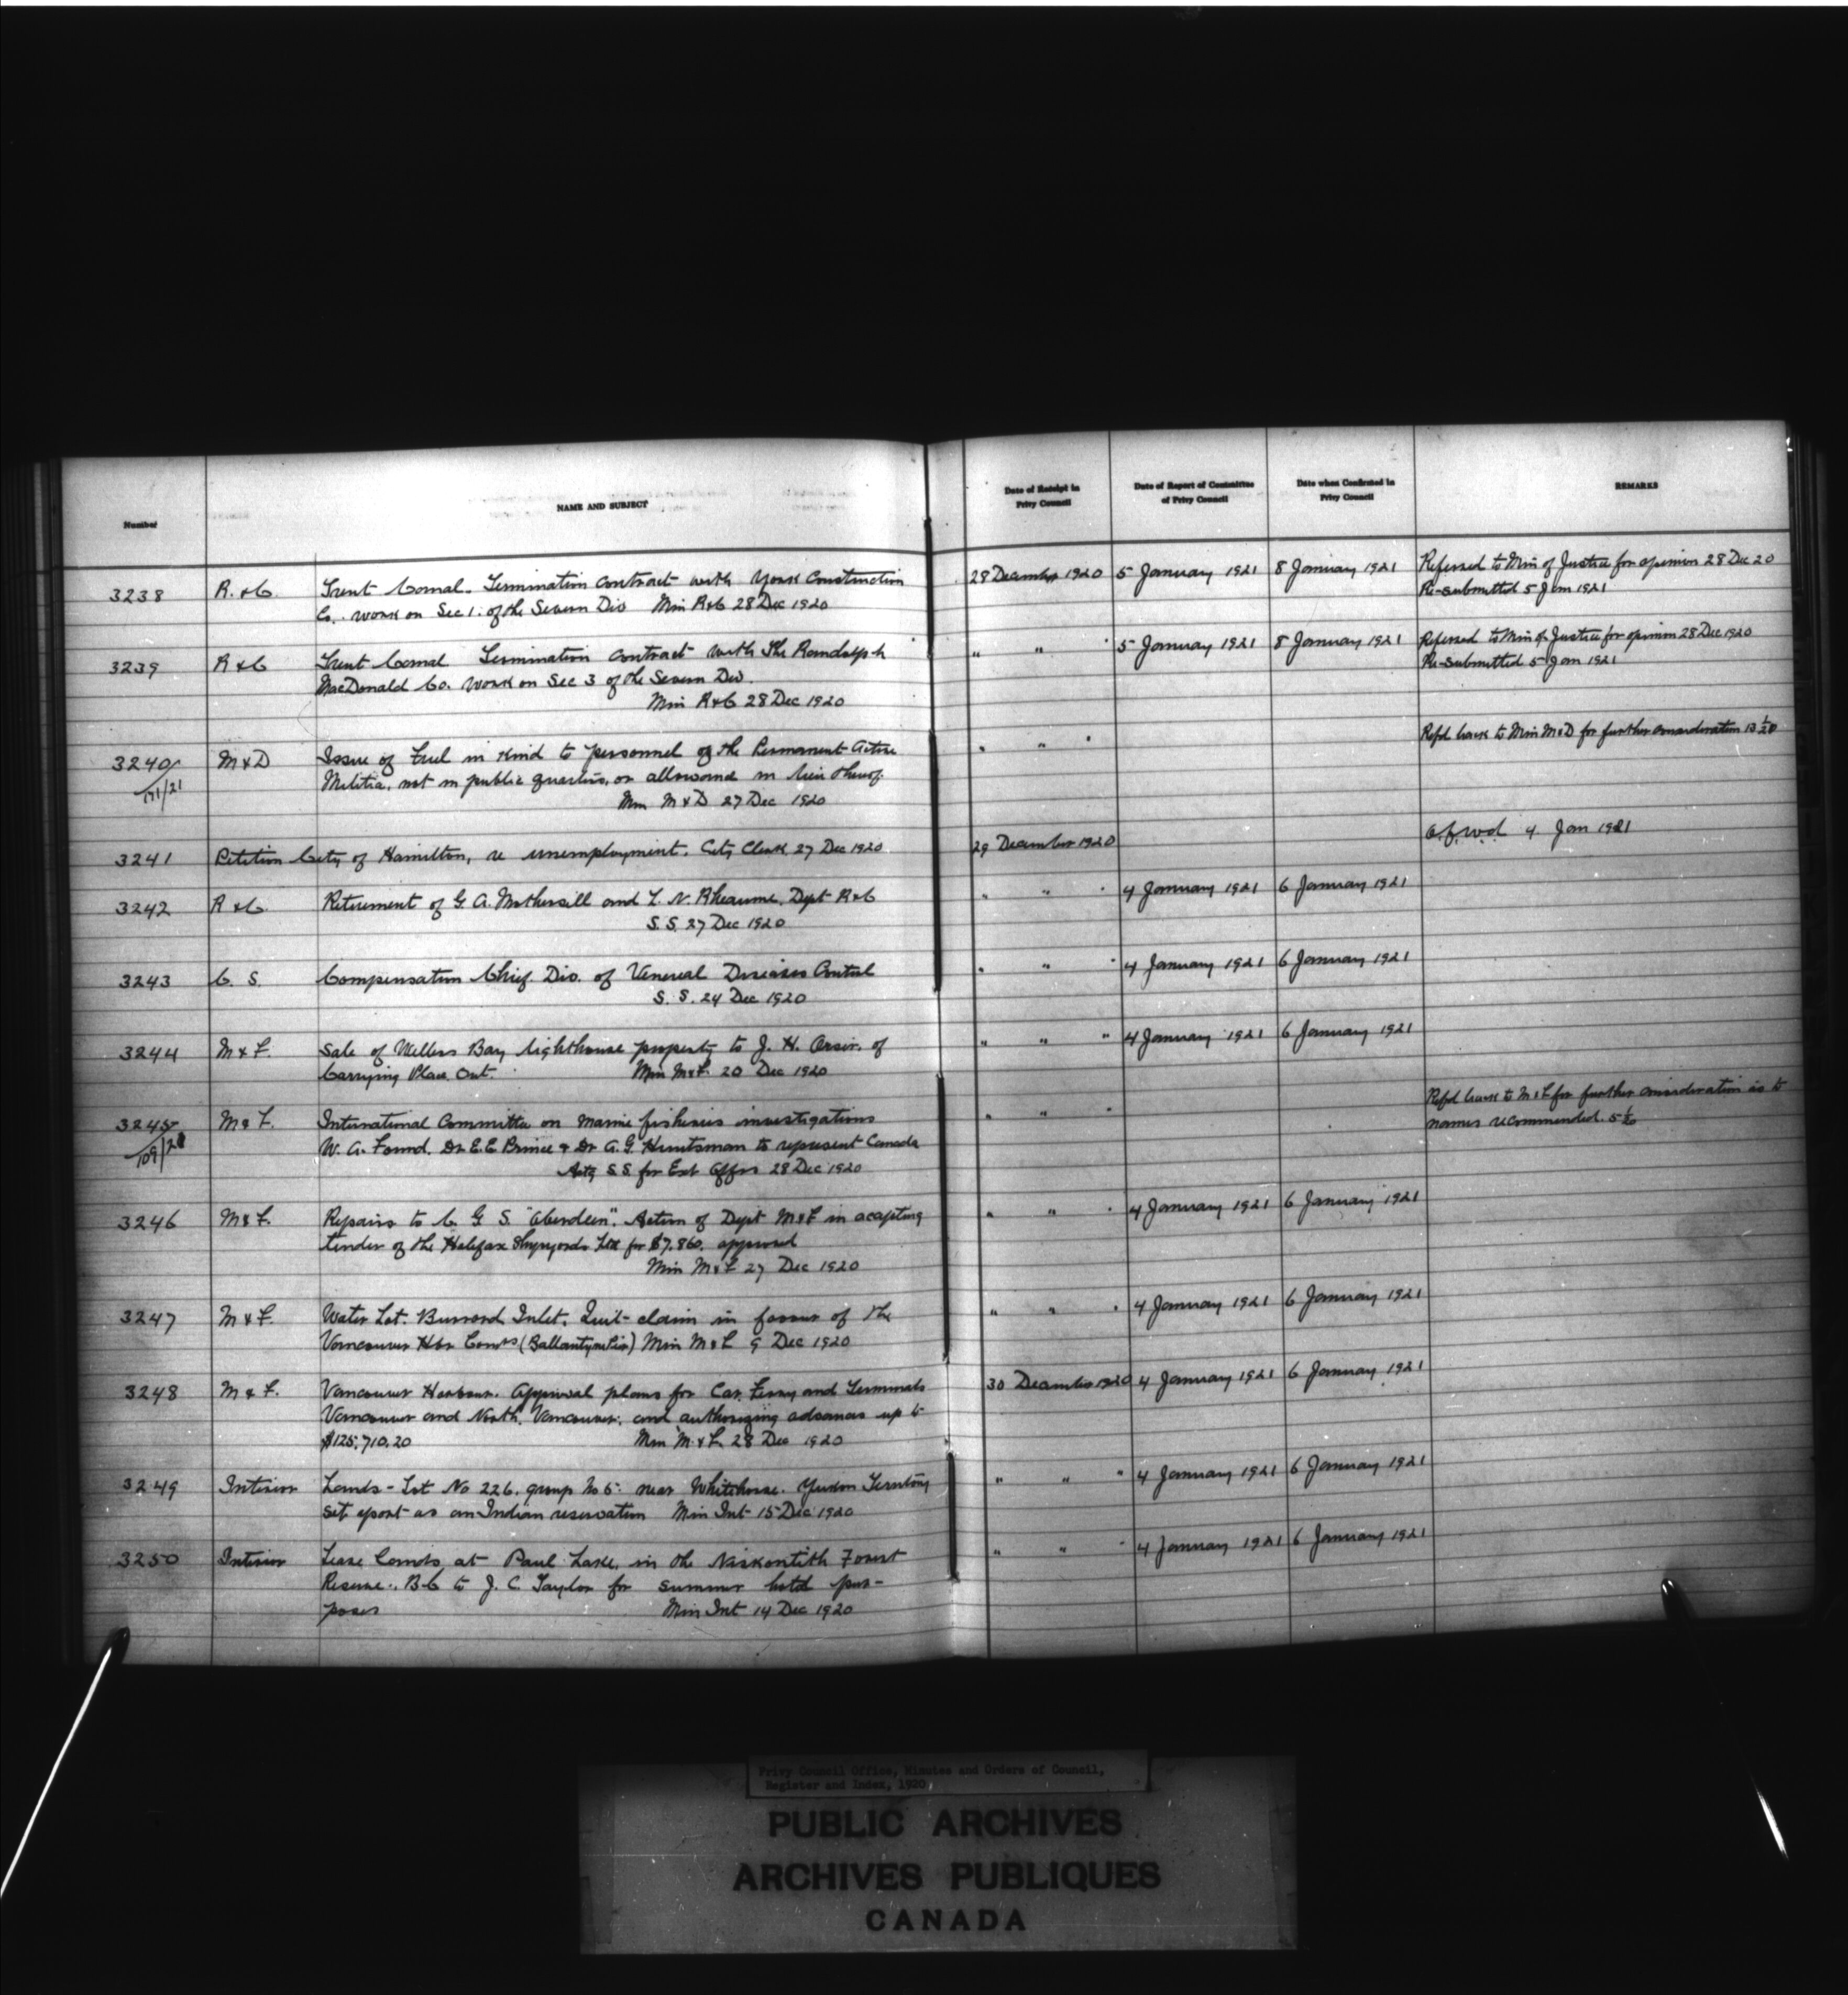 Number
NAME AND SUBJECT
Date of Receipt in
Privy Council
Date of Report of Committee
of Privy Council
Date when Confirmed in
Privy Council
REMARKS
3238 R. & C. Trent Canal. Termination contract with York Construction 28 December 1920 5 January 1921 8 January 1921 Referred to Min of Justice for opinion 28 Dec 20
Co. work on Sec 1. of the Severn Div Min R&C 28 Dec 1920 Re-submitted 5 Jan 1921
3239 R & C Trent Canal Termination contract with The Randolph " " " 5 January 1921 8 January 1921 Referred to Min of Justice for opinion 28 Dec 1920
MacDonald Co. Work on Sec 3 of the Severn Div. Re-submitted 5 Jan 1921
Min R&C 28 Dec 1920
3240 M & D Issue of Fuel in kind to personnel of the Permanent Active " " " Refd back to Min M&D for further consideration
171/21 Militia, not in public quarters, or allowance in lieu thereof.
Min M & D 27 Dec 1920
3241 Petition City of Hamilton, re unemployment. City Clerk 27 Dec 1920 29 December 1920 4 Jan 1921
3242 R & C Retirement of G. A. Mothersill and L. N. Rheaume, Dept R&C " " " 4 January 1921 6 January 1921
S.S. 27 Dec 1920
3243 C. S. Compensation Chief. Div. of Venereal Diseases Control " " " 4 January 1921 6 January 1921
S. S. 24 Dec 1920
3244 M & F. Sale of Wellers Bay lighthouse property to J. H. of " " " 4 January 1921 6 January 1921
Carrying Place Ont. Min M&F. 20 Dec 1920
3245 M & F. International Committee on Marine fisheries investigations " " " Refd back to M & F for further consideration as to
109/21 W. A. Found, Dr E. E Prince & Dr A. G. Huntsman to represent Canada names recommended.
Actg S.S for Ext Affrs 28 Dec 1920
3246 M & F. Repairs to C. G. S. "Aberdeen". Action of Dept M&F in accepting " " " 4 January 1921 6 January 1921
tender of the Halifax Shipyards Ltd for $7,860. approved
Min M&F 27 Dec 1920
3247 M & F. Water Lot. Burrard Inlet. Quit-claim in favour of the " " " 4 January 1921 6 January 1921
Vancouver Hbr Comrs (Ballantyne Pier) Min M & F 9 Dec 1920
3248 M & F. Vancouver Harbour. Approval plans for Car Ferry and Terminals 30 December 1920 4 January 1921 6 January 1921
Vancouver and North Vancouver, and authorizing advances up to
$125,710.20 Min M. & F. 28 Dec 1920
3249 Interior Lands - Lot No 226. group No 5. near Whitehorse. Yukon Territory " " " 4 January 1921 6 January 1921
set apart as an Indian reservation Min Int 15 Dec 1920
3250 Interior Lease lands at Paul Lake, in the Niskonlith Forest " " " 4 January 1921 6 January 1921
Reserve. B.C to J. C. Taylor for summer hotel pur-
poses Min Int 14 Dec 1920
Privy Council Office, Minutes and Orders of Council,
Register and Index, 1920
PUBLIC ARCHIVES
ARCHIVES PUBLIQUES
CANADA